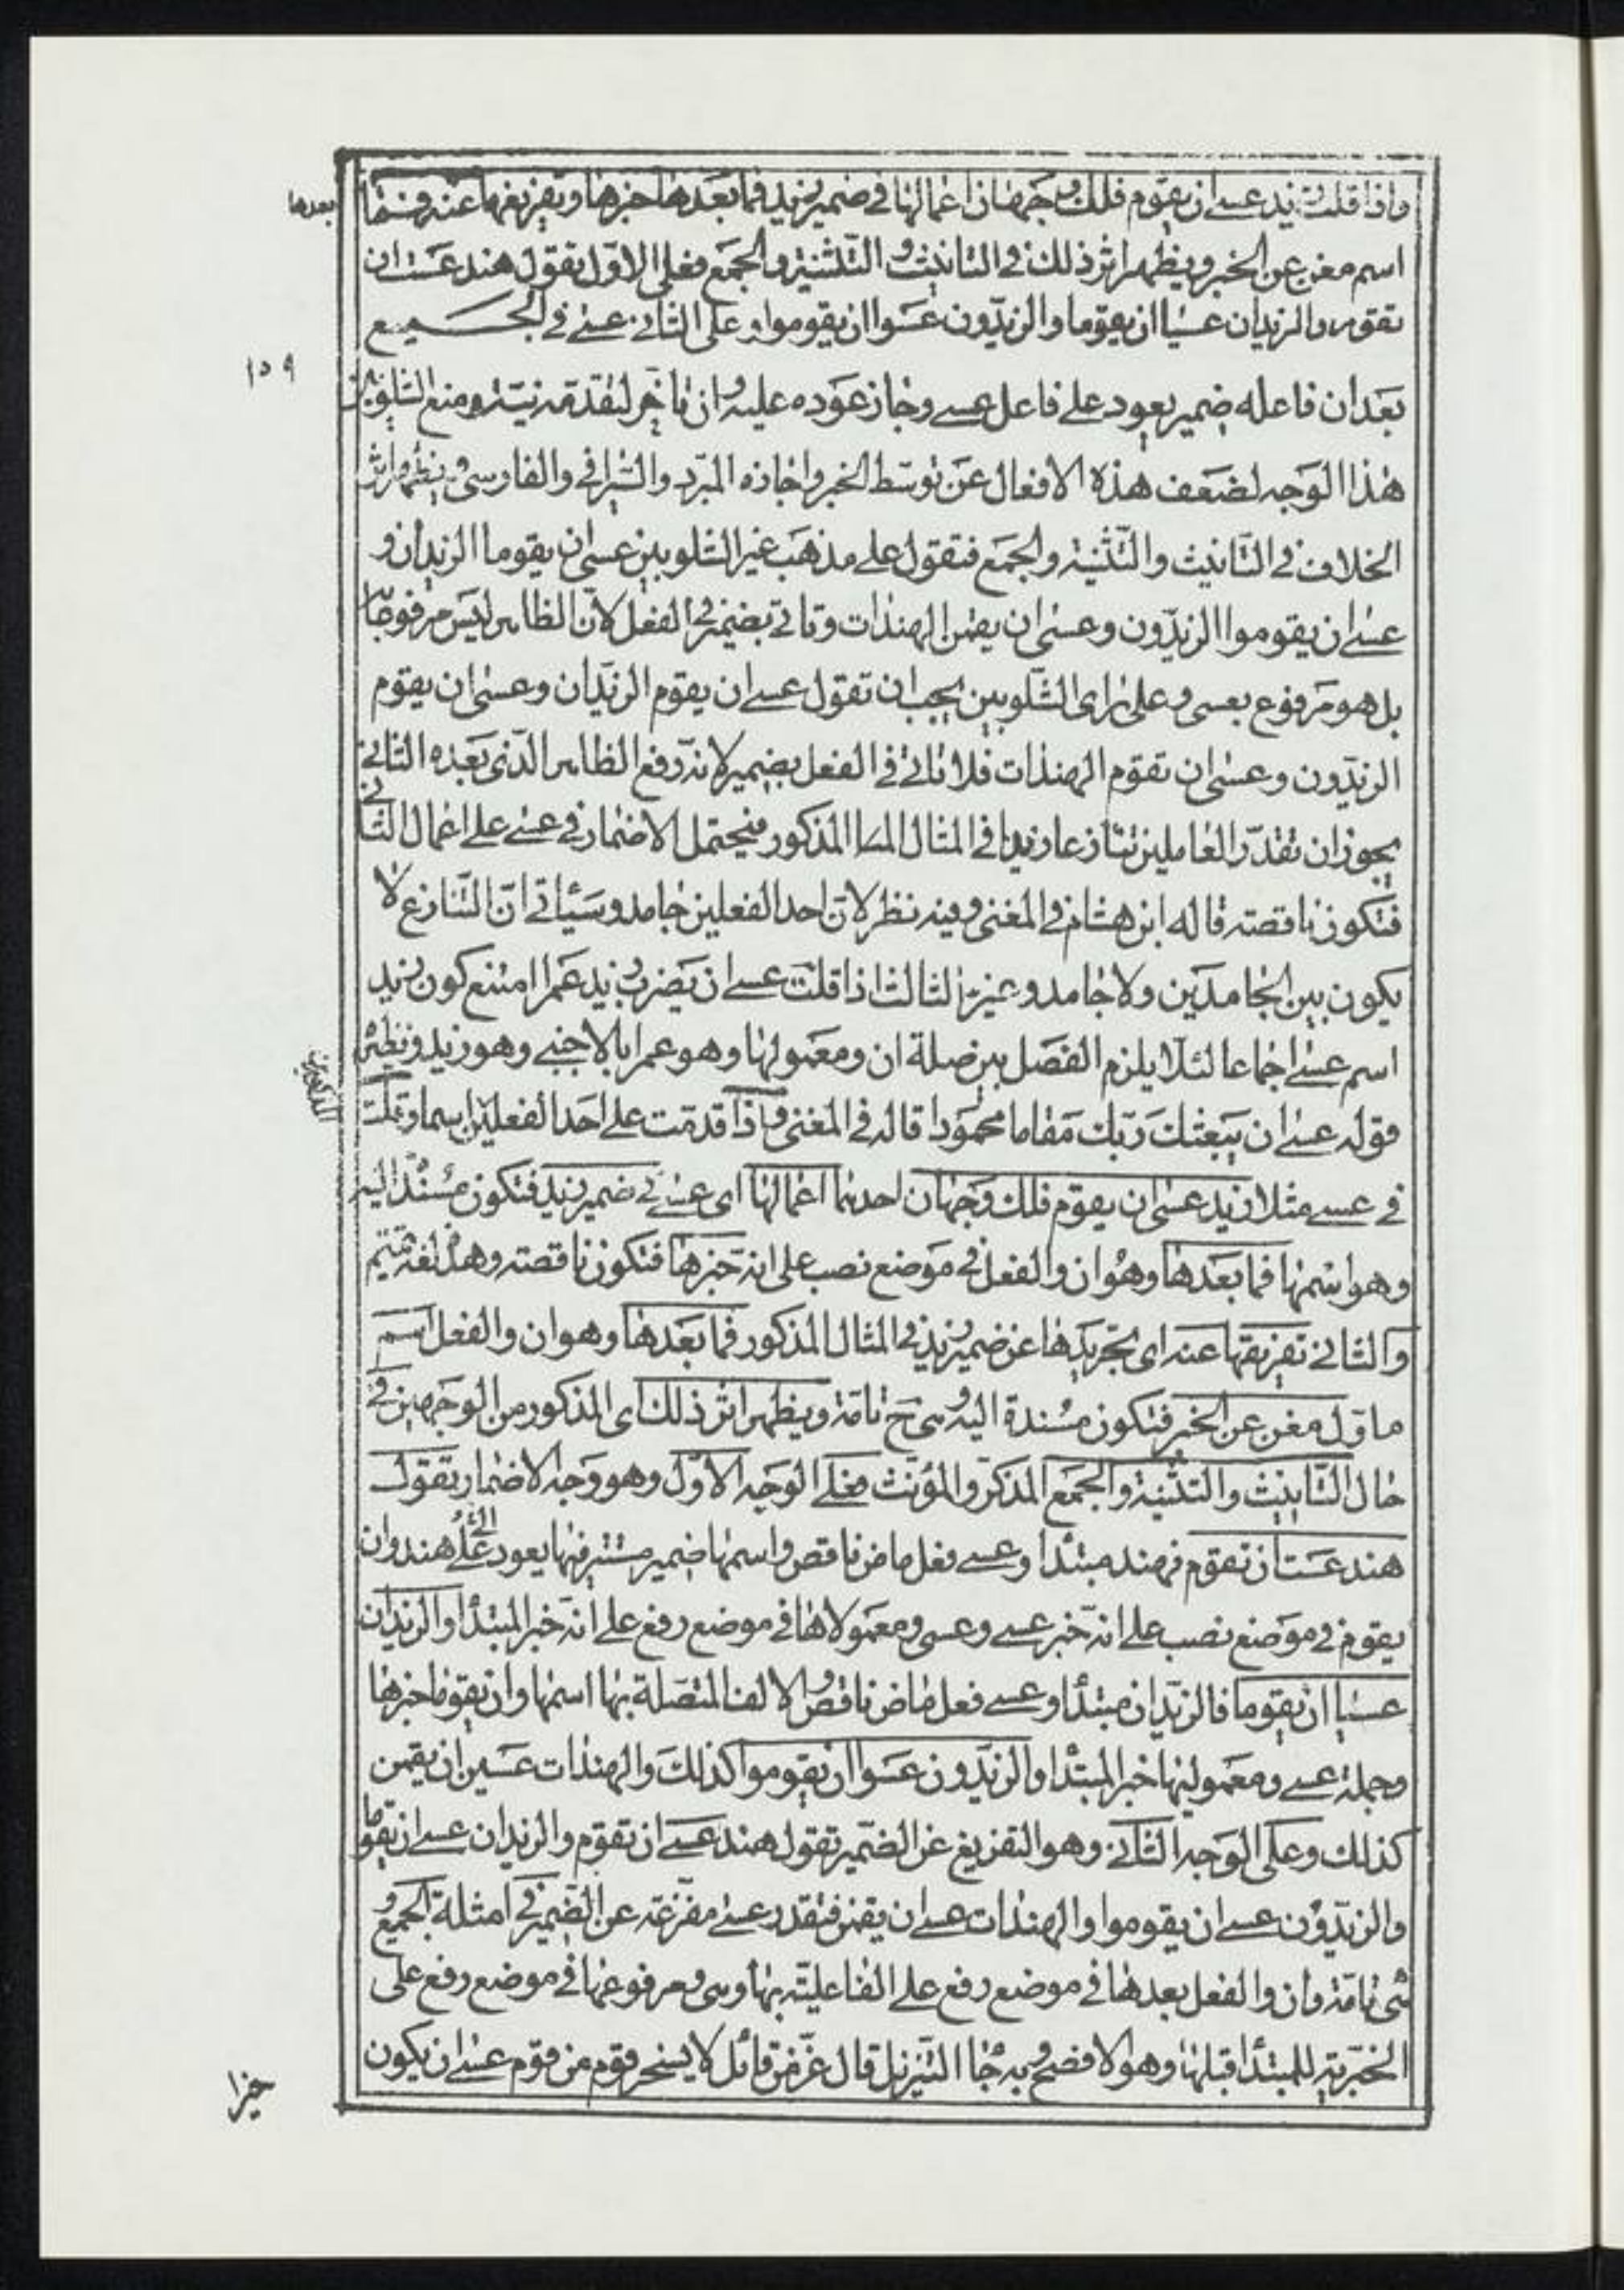 واذا قلت زيد عسى ان يقوم فلك وجهان اعمالها في ضمير زيد فما بعدها خبرها وتفريغها عنه فما بعدها
اسم مغن عن الخبر ويظهر اثر ذلك في التانيث والتثنية والجمع فعلى الاوّل تقول هند عست ان
تقوم والزيدان عسيا ان يقوما والزيدون عسوا ان يقوموا وعلى الثاني عسى في الجميع
١٥٩
بعد ان فاعله ضمير يعود على فاعل عسى وجاز عوده عليه وان تأخر لتقدمه نية ومنع الشلوبين
هذا الوجه لضعف هذه الافعال عن توسّط الخبر واجازه المبرّد والسيرافي والفارسي ويظهر اثر
الخلاف في التانيث والتثنية والجمع فتقول على مذهب غير الشلوبين عسى ان يقوما الزيدان و
عسى ان يقوموا الزيدون وعسى ان يقمن الهندات وتاتي بضمير في الفعل لانّ الظاهر ليس مرفوعا
بل هو مرفوع بعسى وعلى رأى الشلوبين يجب ان تقول عسى ان يقوم الزيدان وعسى ان يقوم
الزيدون وعسى ان تقوم الهندات فلا تاتي في الفعل بضمير لانه رفع الظاهر الذي بعده الثاني
يجوز ان تقدّر العاملين تنازعا زيدا في المثال المذكور فيحتمل الاضمار في عسى على اعمال الثاني
فتكون ناقصة قاله ابن هشام في المغني وفيه نظر لانّ احد الفعلين جامد وسيأتي انّ التنازع لا
يكون بين الجامدين ولا جامد وغيره الثالث اذا قلت عسى ان يضرب زيد عمرا امتنع كون زيد
اسم عسى اجماعا لئلا يلزم الفصل بين صلة ان ومعمولها وهو عمرا بالاجنبي وهو زيد ونظيره
قوله عسى ان يبعثك ربك مقاما محمودا قاله في المغني واذا قدمت على احد الفعلين اسما وقلت
في عسى مثلا زيد عسى ان يقوم فلك وجهان احدهما اعمالها اى عسى في ضمير زيد فتكون مسندة اليه
وهو اسمها فما بعدها وهو ان والفعل في موضع نصب على انه خبرها فتكون ناقصة وهذه لغة تميم
والثاني تفريغها عنه اى تجريدها عن ضمير زيد في المثال المذكور فما بعدها وهو ان والفعل اسم
ماوّل مغن عن الخبر فتكون مسندة اليه وهي ح تامّة ويظهر اثر ذلك اى المذكور من الوجهين في
حال التانيث والتثنية والجمع المذكر والمؤنث فعلى الوجه الاوّل وهو وجه الاضمار تقول
هند عست ان تقوم فهند مبتدأ وعسى فعل ماض ناقص واسمها ضمير مستتر فيها يعود على هند وان
يقوم في موضع نصب على انه خبر عسى وعسى ومعمولاها في موضع رفع على انه خبر المبتدأ والزيدان
عسيا ان يقوما فالزيدان مبتدأ وعسى فعل ماض ناقص والالف المتصلة بها اسمها وان يقوما خبرها
وجملة عسى ومعموليها خبر المبتدأ والزيدون عسوا ان يقوموا كذلك والهندات عسين ان يقمن
كذلك وعلى الوجه الثاني وهو التفريغ عن الضمير تقول هند عسى ان تقوم والزيدان عسى ان يقوما
والزيدون عسى ان يقوموا والهندات عسى ان يقمن فتقدر عسى مفرّغة عن الضمير في امثلة الجميع و
هى تامّة وان والفعل بعدها في موضع رفع على الفاعليّة بها وهي ومرفوعها في موضع رفع على
الخبرّية للمبتدأ قبلها وهو الافصح وبه جاء التنزيل قال عزّ من قائل لا يسخر قوم من قوم عسى ان يكون
خيرا